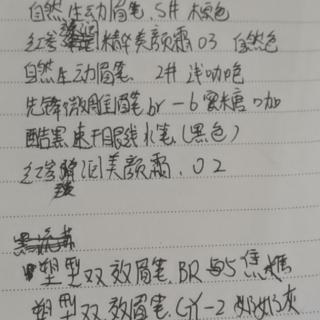 自然生动眉笔.5# 棕色
红参滋润精华美颜霜03 自然色
自然生动眉笔. 2# 浅咖色
先锋微雕眉笔br-6蜜糖咖
酷黑速干眼线水笔.(黑色)
红参滋润美颜霜.02
塑型双效眉笔.BR 5焦糖
塑型双效眉笔.GY-2奶奶灰